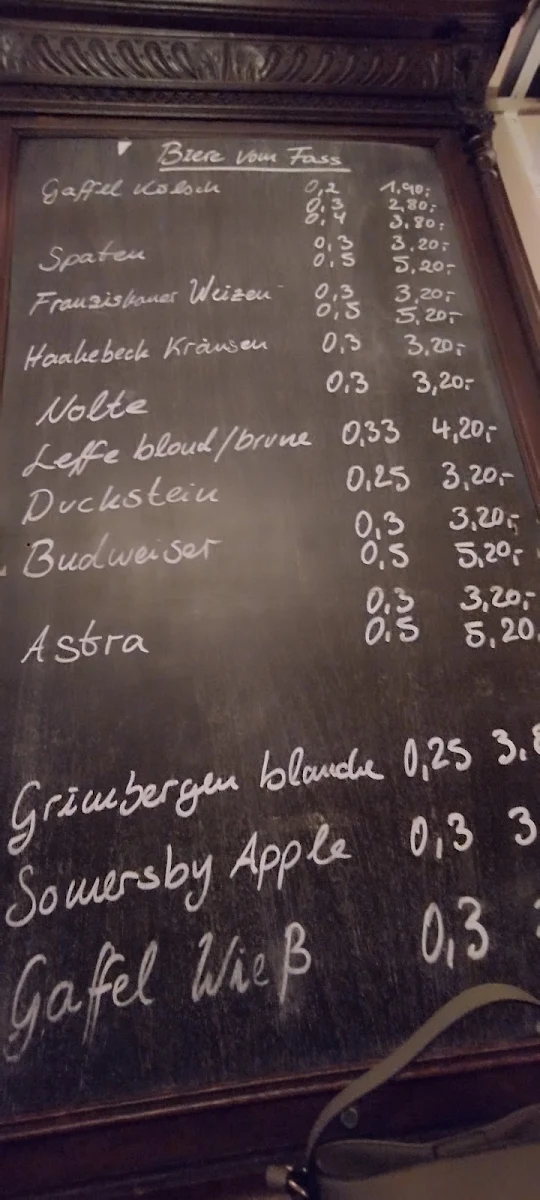 Biere vom Fass
Gaffel Kölsch 0,2 1,90,-
0,3 2,80,-
0,4 3,80,-
Spaten 0,3 3,20,-
0,5 5,20,-
Franziskaner Weizen 0,3 3,20,-
0,5 5,20,-
Haakebeck Kräusen 0,3 3,20,-
Nolte 0,3 3,20,-
Leffe blond/brune 0,33 4,20,-
Duckstein 0,25 3,20,-
Budweiser 0,3 3,20,-
0,5 5,20,-
Astra 0,3 3,20,-
0,5 5,20
Grimbergen blanche 0,25 3,8
Somersby Apple 0,3 3
Gaffel Wieß 0,3